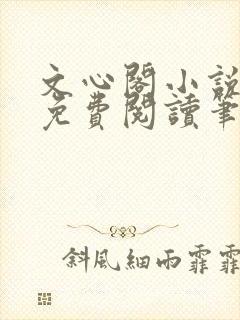 文心閣小說
免費閱讀筆
斜風細雨霏霏